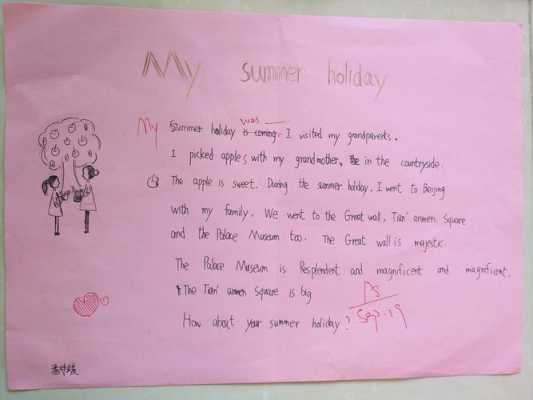 My summer holiday
My Summer holiday is coming. was I visited my grandparents.
I picked apples with my grandmother, in the countryside.
The apple is sweet. During the summer holiday, I went to Beijing
with my family. We went to the Great wall, Tian' anmen Square
and the Palace Museum too. The Great wall is majestic.
The Palace Museum is Resplendent and magnificent and magnificent.
The Tian' anmen Square is big
How about your summer holiday?
Sep.19